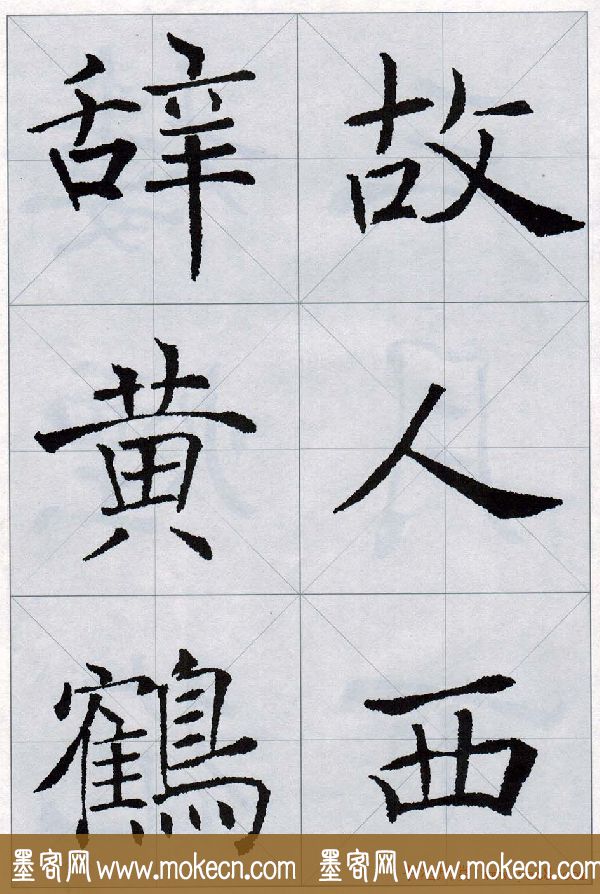 故人西
辞黄鹤
墨客网 www.mokecn.com 墨客网 www.mokecn.com